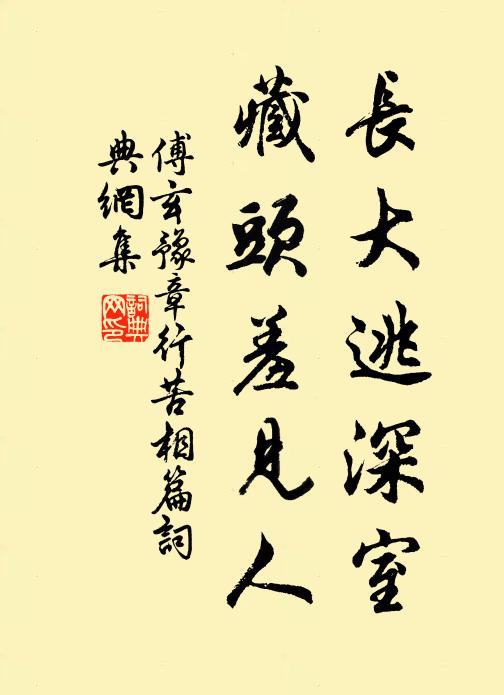 長大逃深室
藏頭羞見人
傅玄豫章行苦相篇詞
典網集
詞典网印